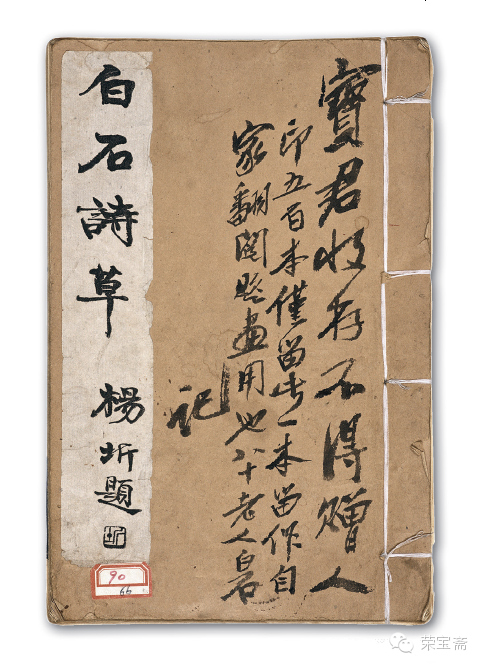 寶君收存不得赠人
印五百本僅留此一本留作自
家翻閱題畫用也八十老人白石
記
白石詩草
楊圻題
圻
90
66
荣宝斋